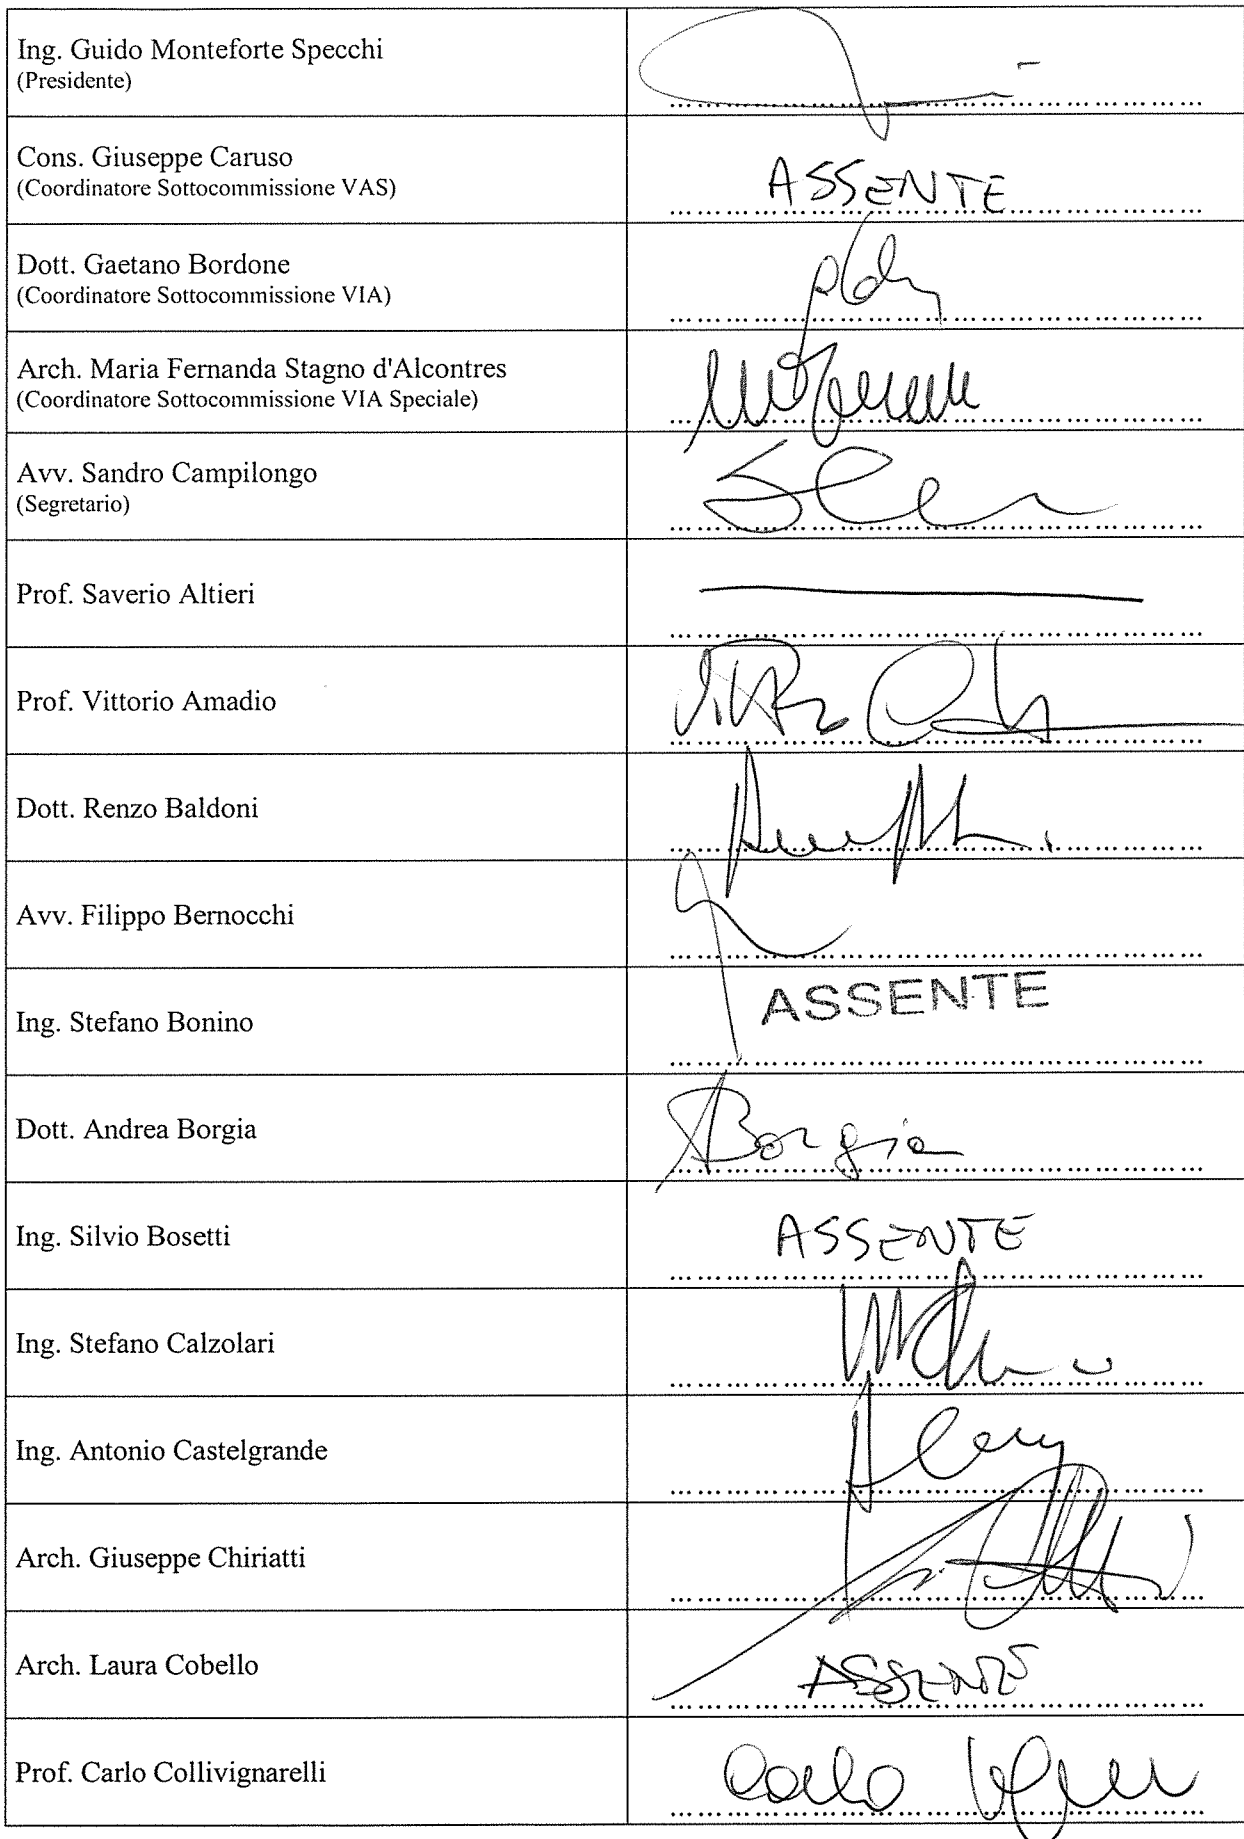 Ing. Guido Monteforte Specchi
(Presidente)
Cons. Giuseppe Caruso
(Coordinatore Sottocommissione VAS)
ASSENTE
Dott. Gaetano Bordone
(Coordinatore Sottocommissione VIA)
Arch. Maria Fernanda Stagno d'Alcontres
(Coordinatore Sottocommissione VIA Speciale)
Avv. Sandro Campilongo
(Segretario)
Prof. Saverio Altieri
Prof. Vittorio Amadio
Dott. Renzo Baldoni
Avv. Filippo Bernocchi
Ing. Stefano Bonino
ASSENTE
Dott. Andrea Borgia
Borgia
Ing. Silvio Bosetti
ASSENTE
Ing. Stefano Calzolari
Ing. Antonio Castelgrande
Arch. Giuseppe Chiriatti
Arch. Laura Cobello
ASSENTE
Prof. Carlo Collivignarelli
Carlo